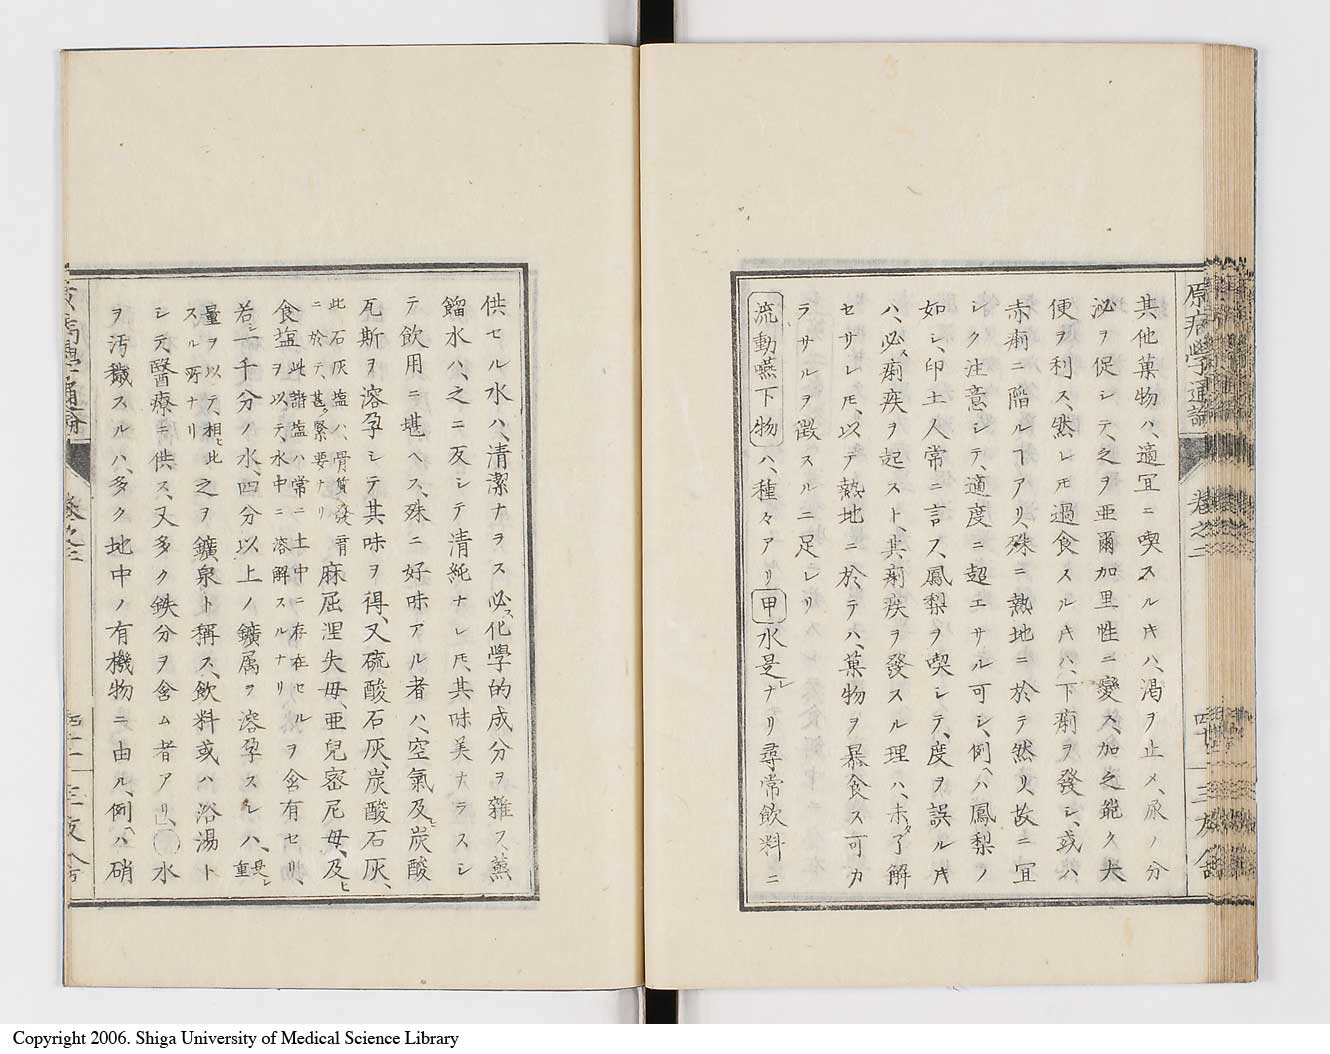 原病學通論
卷之二
其他菓物ハ、適宜ニ喫スルキハ、渇ヲ止メ、尿ノ分
泌ヲ促シテ、之ヲ亜爾加里性ニ變ス、加之能ク大
便ヲ利ス、然レ𪜈過食スルキハ、下痢ヲ發シ、或ハ
赤痢ニ陥ルヿアリ、殊ニ熱地ニ於テ然リ、故ニ宜
シク注意シテ、適度ニ超エサル可シ、例ヘハ鳳梨ノ
如シ、印土人常ニ言ス、鳳梨ヲ喫シテ、度ヲ誤ルキ
ハ、必ス痢疾ヲ起スト、其痢疾ヲ發スル理ハ、未タ了解
セサレ𪜈、以テ熱地ニ於テハ、菓物ヲ暴食ス可カ
ラサルヲ徴スルニ足レリ
流動嚥下物ハ、種々アリ甲水是レナリ尋常飲料ニ
供セル水ハ、清潔ナラス必ス化學的成分ヲ雜ス、蒸
餾水ハ、之ニ反シテ清純ナレ𪜈、其味美ナラスシ
テ飲用ニ堪ヘス、殊ニ好味アル者ハ、空氣及ヒ炭酸
瓦斯ヲ溶孕シテ其味ヲ得、又硫酸石灰、炭酸石灰、
此石灰塩ハ、骨質發育
ニ於テ、甚タ緊要ナリ
麻屈涅失母、亜兒密尼母、及ヒ
食塩此諸塩ハ常ニ土中ニ存在セル
ヲ以テ、水中ニ溶解スルナリ
ヲ含有セリ、
若シ一千分ノ水、四分以上ノ鑛属ヲ溶孕スレハ、是レ重
量ヲ以テ、相ヒ此
スル所ナリ
之ヲ鑛泉ト稱ス、飲料或ハ浴湯ト
シテ、醫療ニ供ス、又多ク鉄分ヲ含ム者アリ、水
ヲ汚穢スルハ、多ク地中ノ有機物ニ由ル、例ヘハ硝
Copyright 2006. Shiga University of Medical Science Library